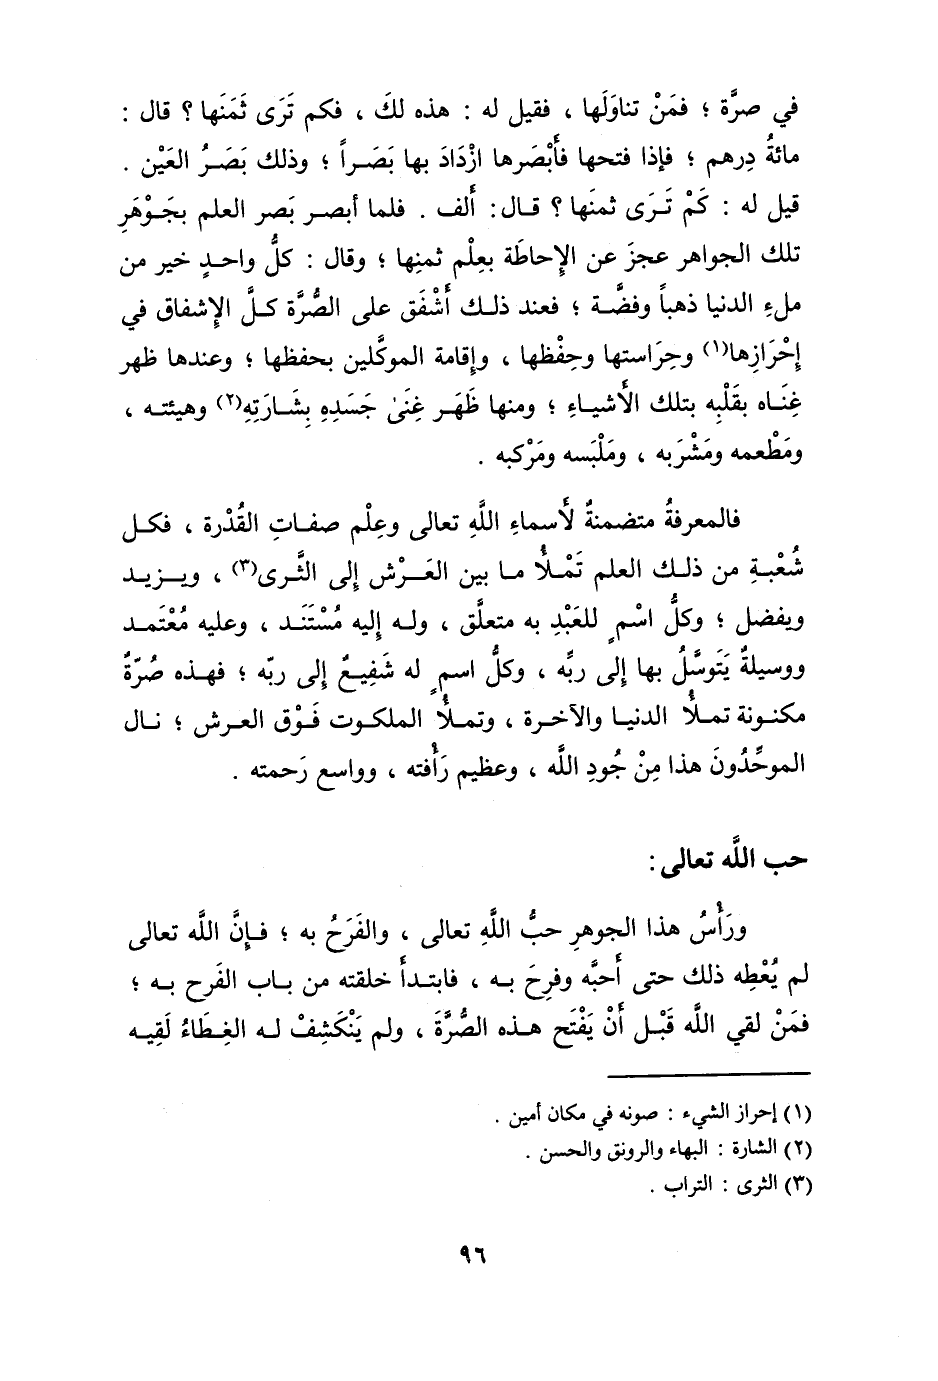 في صرَّة ؛ فمَنْ تناوَلَها ، فقيل له : هذه لكَ ، فكم تَرَى ثَمَنَها ؟ قال :
مائةُ دِرهم ؛ فإذا فتحها فأَبْصَرها ازْدَادَ بها بَصَراً ؛ وذلك بَصَرُ العَيْن .
قيل له : كَمْ تَرَى ثمنَها ؟ قال : أَلف . فلما أبصر بَصر العلم بجَوْهَرِ
تلك الجواهر عجزَ عن الإِحاطَة بعِلْم ثمنِها ؛ وقال : كلُّ واحدٍ خير من
ملءِ الدنيا ذهباً وفضَّة ؛ فعند ذلك أَشْفَق على الصُّرَّة كلَّ الإِشفاق في
إحْرَازِها(١) وحِرَاستها وحِفْظها ، وإقامة الموكَّلين بحفظها ؛ وعندها ظهر
غِنَاه بقَلْبِه بتلك الأَشياءِ ؛ ومنها ظَهَر غِنَىٰ جَسَدِه بِشَارَتِهِ(٢) وهيئته ،
ومَطْعمه ومَشْرَبه ، ومَلْبَسه ومَرْكبه .
فالمعرفةُ متضمنةٌ لأَسماءِ اللَّهِ تعالى وعِلْم صفاتِ القُدْرة ، فكل
شُعْبةٍ من ذلك العلم تَمْلأُ ما بين العَرْش إلى الثَّرى(٣) ، ويزيد
ويفضل ؛ وكلُّ اسْمٍ للعَبْدِ به متعلَّق ، وله إليه مُسْتَنَد ، وعليه مُعْتَمد
ووسيلةٌ يَتَوسَّلُ بها إلى ربِّه ، وكلُّ اسمٍ له شَفِيعٌ إلى ربّه ؛ فهذه صُرّةٌ
مكنونة تملأُ الدنيا والآخرة ، وتملأُ الملكوت فَوْق العرش ؛ نال
الموحِّدُونَ هذا مِنْ جُودِ اللَّه ، وعظيم رَأْفته ، وواسع رَحمته .
حب اللَّه تعالى :
ورَأْسُ هذا الجوهرِ حبُّ اللَّهِ تعالى ، والفَرَحُ به ؛ فإنَّ اللَّه تعالى
لم يُعْطِه ذلك حتى أَحبَّه وفرِحَ به ، فابتدأَ خلقته من باب الفَرح به ؛
فمَنْ لقي اللَّه قَبْل أَنْ يَفْتَح هذه الصُّرَّةَ ، ولم يَنْكَشِفْ له الغِطَاءُ لَقِيه
(١) إحراز الشيء : صونه في مكان أمين .
(٢) الشارة : البهاء والرونق والحسن .
(٣) الثرى : التراب .
٩٦